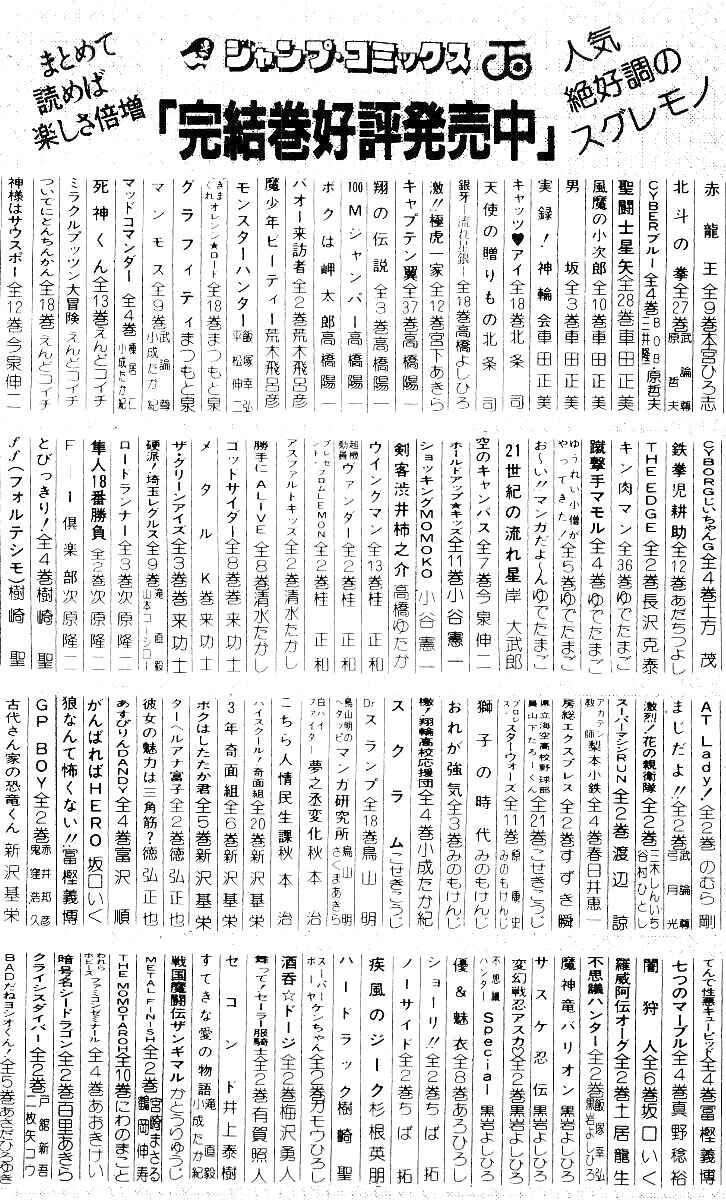 まとめて
読めば
楽しさ倍増
ジャンプ・コミックス
人気
絶好調の
スグレモノ
「完結巻好評発売中」
赤龍王 全9巻 本宮ひろ志
北斗の拳 全27巻 武論尊 原哲夫
CYBERブルー 全4巻 BOB・原哲夫 三井隆一
聖闘士星矢 全28巻 車田正美
風魔の小次郎 全10巻 車田正美
男坂 全3巻 車田正美
実録!神輪会 車田正美
キャッツ♥アイ 全18巻 北条司
天使の贈りもの 北条司
銀牙―流れ星 銀― 全18巻 高橋よしひろ
激!!極虎一家 全12巻 宮下あきら
キャプテン翼 全37巻 高橋陽一
翔の伝説 全3巻 高橋陽一
100Mジャンパー 高橋陽一
ボクは岬太郎 高橋陽一
バオー来訪者 全2巻 荒木飛呂彦
魔少年ビーティー 荒木飛呂彦
モンスターハンター 飯塚幸弘 平松伸二
きまぐれオレンジ★ロード 全18巻 まつもと泉
グラフィティ まつもと泉
マンモス 全9巻 武論尊 小成たか紀
マッドコマンダー 全4巻 榎居仁 小成たか紀
死神くん 全13巻 えんどコイチ
ミラクルプッツン大冒険 えんどコイチ
ついでにとんちんかん 全18巻 えんどコイチ
神様はサウスポー 全12巻 今泉伸二
CYBORGじいちゃんG 全4巻 土方茂
鉄拳児耕助 全12巻 あだちつよし
THE EDGE 全2巻 長沢克泰
キン肉マン 全36巻 ゆでたまご
蹴撃手マモル 全4巻 ゆでたまご
ゆうれい小僧がやってきた! 全5巻 ゆでたまご
お〜い!!マンガだよ〜ん ゆでたまご
21世紀の流れ星 岸大武郎
空のキャンバス 全7巻 今泉伸二
ホールドアップ★キッズ 全11巻 小谷憲一
ショッキングMOMOKO 小谷憲一
剣客渋井柿之介 高橋ゆたか
ウイングマン 全13巻 桂正和
超機動員ヴァンダー 全2巻 桂正和
プレゼント・フロムLEMON 全2巻 桂正和
アスファルトキッズ 全2巻 清水たかし
勝手にALIVE 全8巻 清水たかし
ゴッドサイダー 全8巻 巻来功士
メタルK 巻来功士
ザ・グリーンアイズ 全3巻 巻来功士
硬派!埼玉レグルス 全9巻 滝直毅 山本コーシロー
ロードランナー 全3巻 次原隆二
隼人18番勝負 全2巻 次原隆二
F―1倶楽部 次原隆二
とびっきり! 全4巻 樹崎聖
ff(フォルテシモ) 樹崎聖
AT Lady! 全2巻 のむら剛
まじだよ!! 全2巻 武論尊 弓月光
激烈!花の親衛隊 全2巻 三木しんいち 谷村ひとし
スーパーマシンRUN 全2巻 渡辺諒
アカテン教師梨本小鉄 全4巻 春日井恵一
房総エクスプレス 全2巻 すずき瞬
県立海空高校野球部員山下たろーくん 全21巻 こせきこうじ
プロレス・スターウォーズ 全11巻 原康史 みのもけんじ
獅子の時代 みのもけんじ
おれが強気 全3巻 みのもけんじ
檄!翔輪高校応援団 全4巻 小成たか紀
スクラム こせきこうじ
Dr.スランプ 全18巻 鳥山明
鳥山明のヘタッピマンガ研究所 鳥山明 さくまあきら
白バイファイター 夢之丞変化 秋本治
こちら人情民生課 秋本治
ハイスクール!奇面組 全20巻 新沢基栄
3年奇面組 全6巻 新沢基栄
ボクはしたたか君 全5巻 新沢基栄
ターヘルアナ富子 全2巻 徳弘正也
彼女の魅力は三角筋? 徳弘正也
あすぴりんDANDY 全4巻 富沢順
がんばればHERO 坂口いく
狼なんて怖くない!! 冨樫義博
GP BOY 全2巻 赤井邦彦 鬼窪浩久
古代さん家の恐竜くん 新沢基栄
てんで性悪キューピッド 全4巻 冨樫義博
七つのマーブル 全4巻 真野稔裕
闇狩人 全6巻 坂口いく
羅威阿伝オーグ 全2巻 土居龍生
不思議ハンター 全2巻 飯塚幸弘 黒岩よしひろ
魔神竜バリオン 黒岩よしひろ
サスケ忍伝 黒岩よしひろ
変幻戦忍アスカ♡ 全2巻 黒岩よしひろ
不思議ハンターSpecial 黒岩よしひろ
優&魅衣 全8巻 あろひろし
ショーリ!! 全2巻 ちば拓
ノーサイド 全2巻 ちば拓
疾風のジーク 杉根英朋
ハートラック 樹崎聖
スーパーボーヤーケンちゃん 全2巻 ガモウひろし
酒呑☆ドージ 全2巻 梅沢勇人
舞って!セーラー服騎士 全2巻 有賀照人
セコンド 井上泰樹
すてきな愛の物語 滝直毅 小成たか紀
戦国魔闘伝ザンギマル かとうりゅうじ
METAL FINISH 全2巻 宮崎まさる 鶴岡伸寿
THE MOMOTAROH 全10巻 にわのまこと
われらホビーズファミコンゼミナール 全4巻 あおきけい
暗号名シードラゴン 全2巻 百里あきら
クラインスダイバー 全2巻 戸舘新吾 二枚矢コウ
BADだねヨシオくん! 全5巻 あさだひろゆき